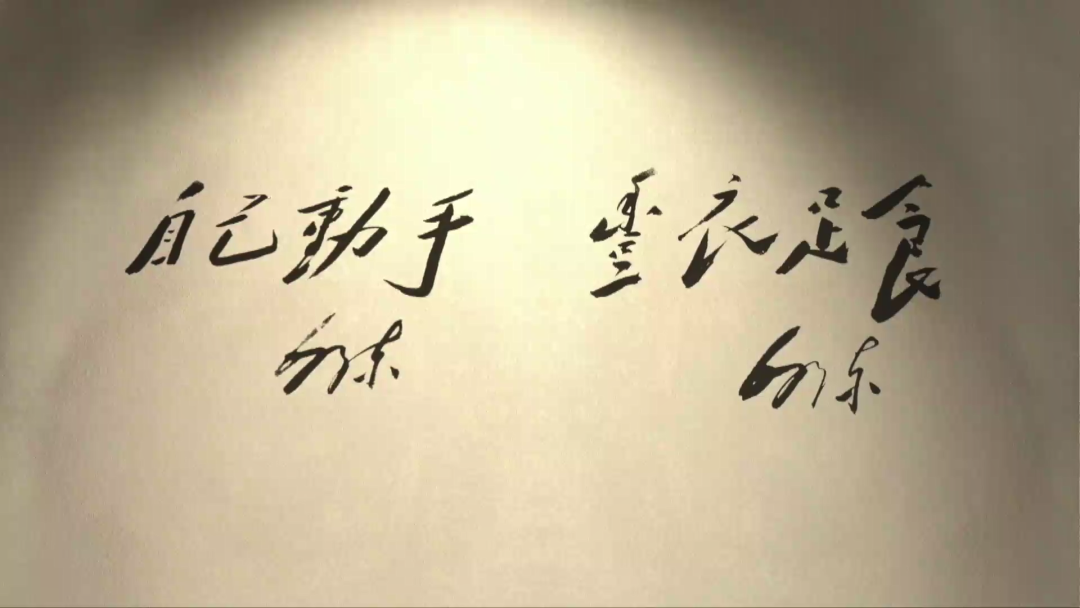 自己動手 豐衣足食
泽东 泽东